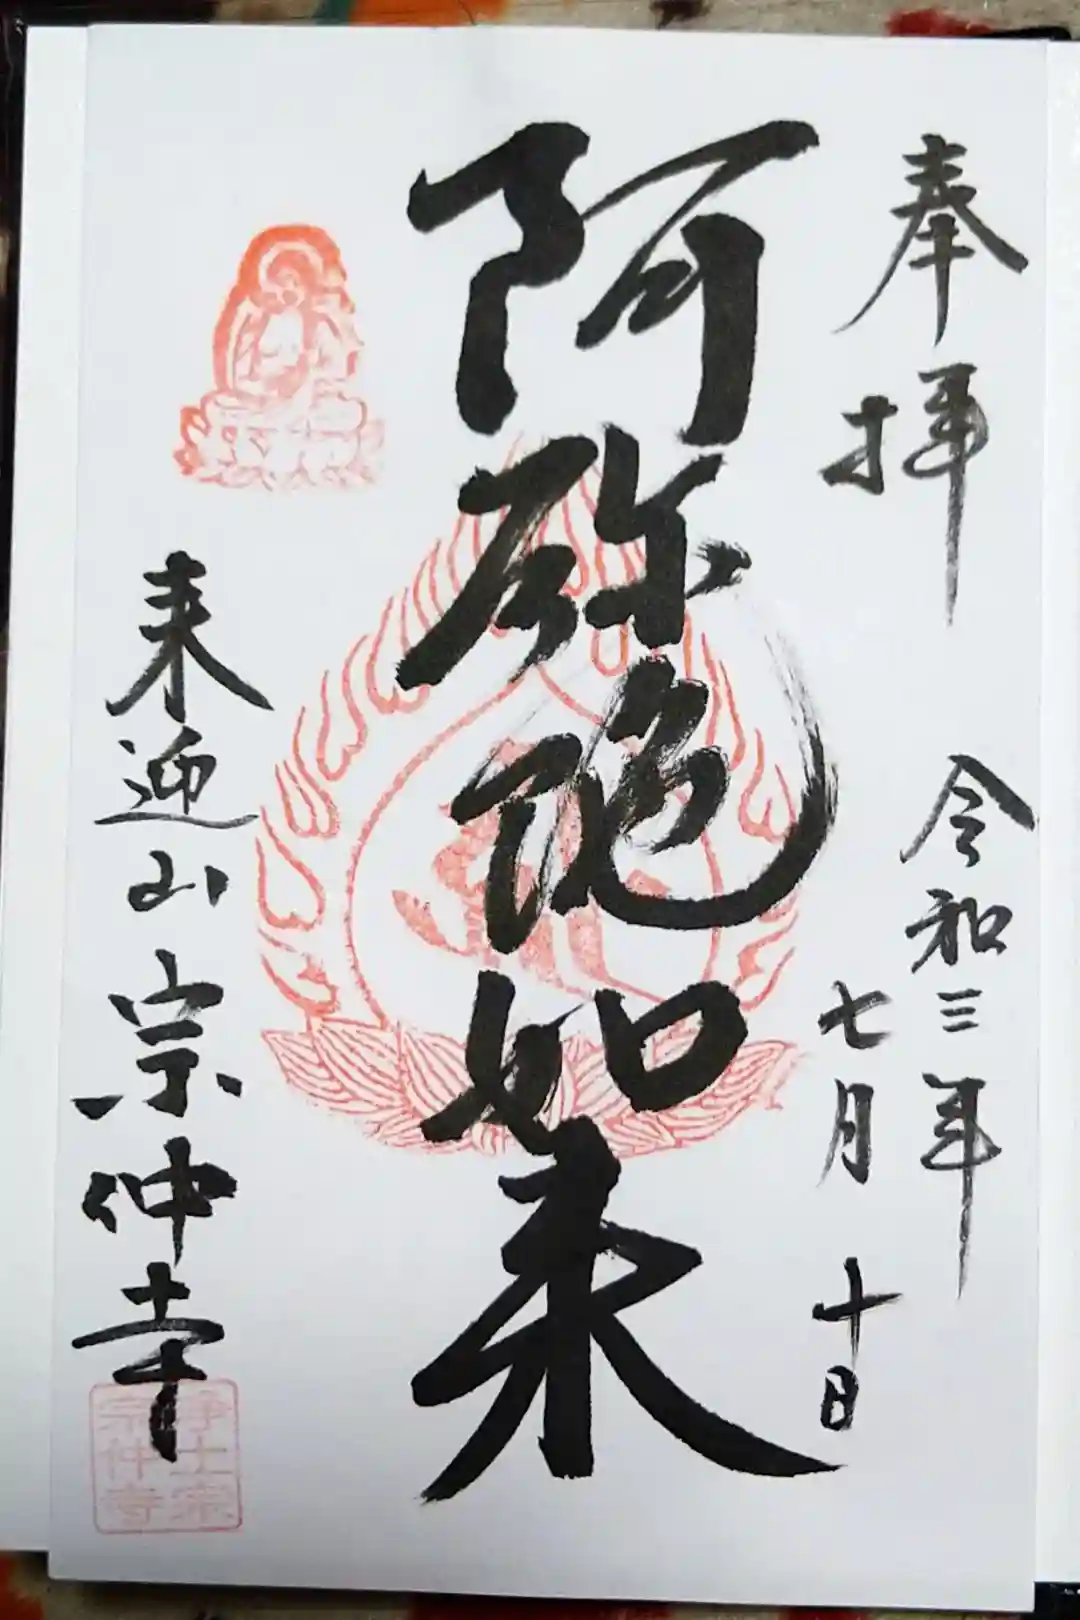 奉拝
令和三年
七月十日
阿弥陀如来
来迎山宗仲寺
浄土宗
宗仲寺